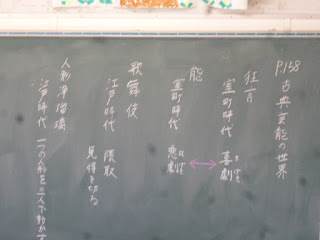 P158 古典芸能の世界
狂言
室町時代 喜劇
能
室町時代 悲劇
歌舞伎
江戸時代 隈取
見得を切る
人形浄瑠璃
江戸時代 一つの人形を三人で動かす